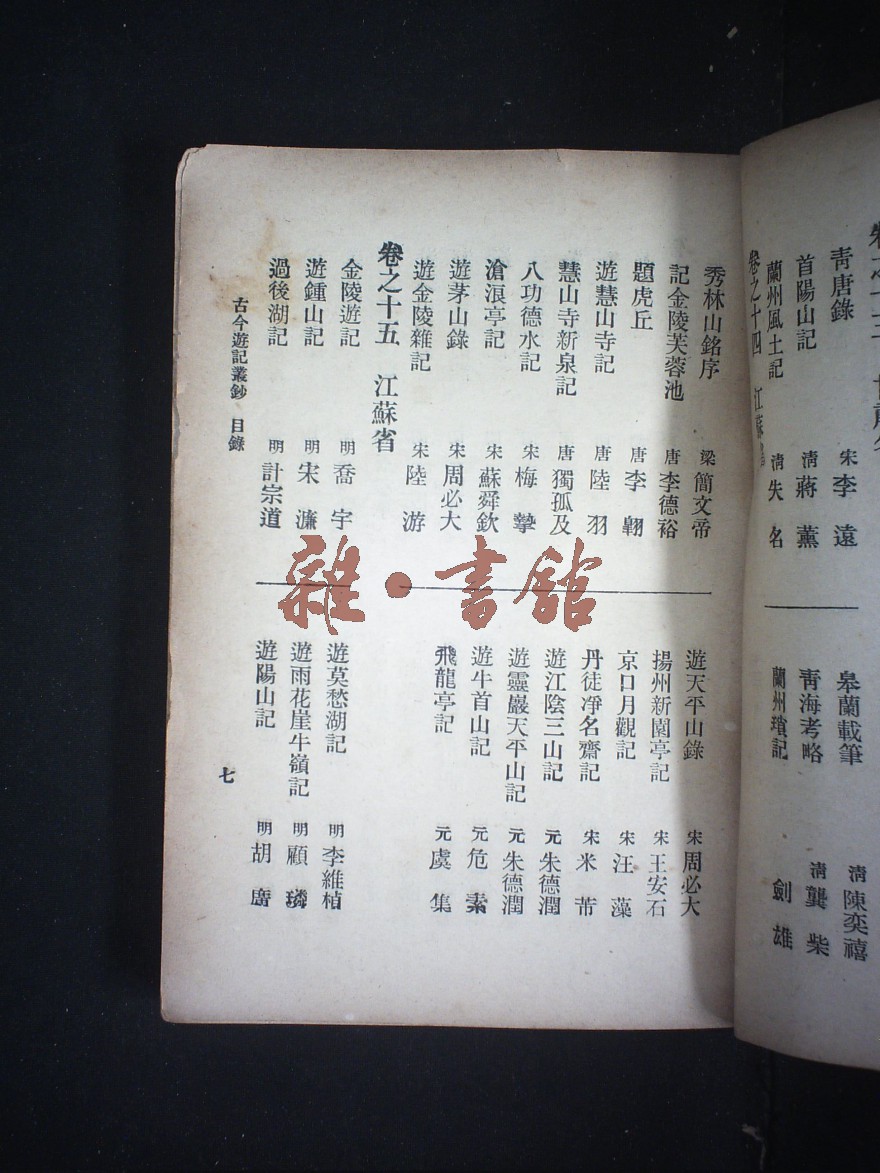 青唐錄 宋 李遠
首陽山記 清 蔣薰
蘭州風土記 清 失名
皋蘭載筆 清 陳奕禧
青海考略 清 龔柴
蘭州瑣記 劍雄
卷之十四 江蘇
秀林山銘序 梁 簡文帝
記金陵芙蓉池 唐 李德裕
題虎丘 唐 李翱
遊慧山寺記 唐 陸羽
慧山寺新泉記 唐 獨孤及
八功德水記 宋 梅摯
滄浪亭記 宋 蘇舜欽
遊茅山錄 宋 周必大
遊金陵雜記 宋 陸游
遊天平山錄 宋 周必大
揚州新園亭記 宋 王安石
京口月觀記 宋 汪藻
丹徒淨名齋記 宋 米芾
遊江陰三山記 元 朱德潤
遊靈巖天平山記 元 朱德潤
遊牛首山記 元 危素
飛龍亭記 元 虞集
卷之十五 江蘇省
金陵遊記 明 喬宇
遊鍾山記 明 宋濂
過後湖記 明 計宗道
遊莫愁湖記 明 李維楨
遊雨花崖牛嶺記 明 顧璘
遊陽山記 明 胡廣
古今遊記叢鈔 目錄
七
雜·書館